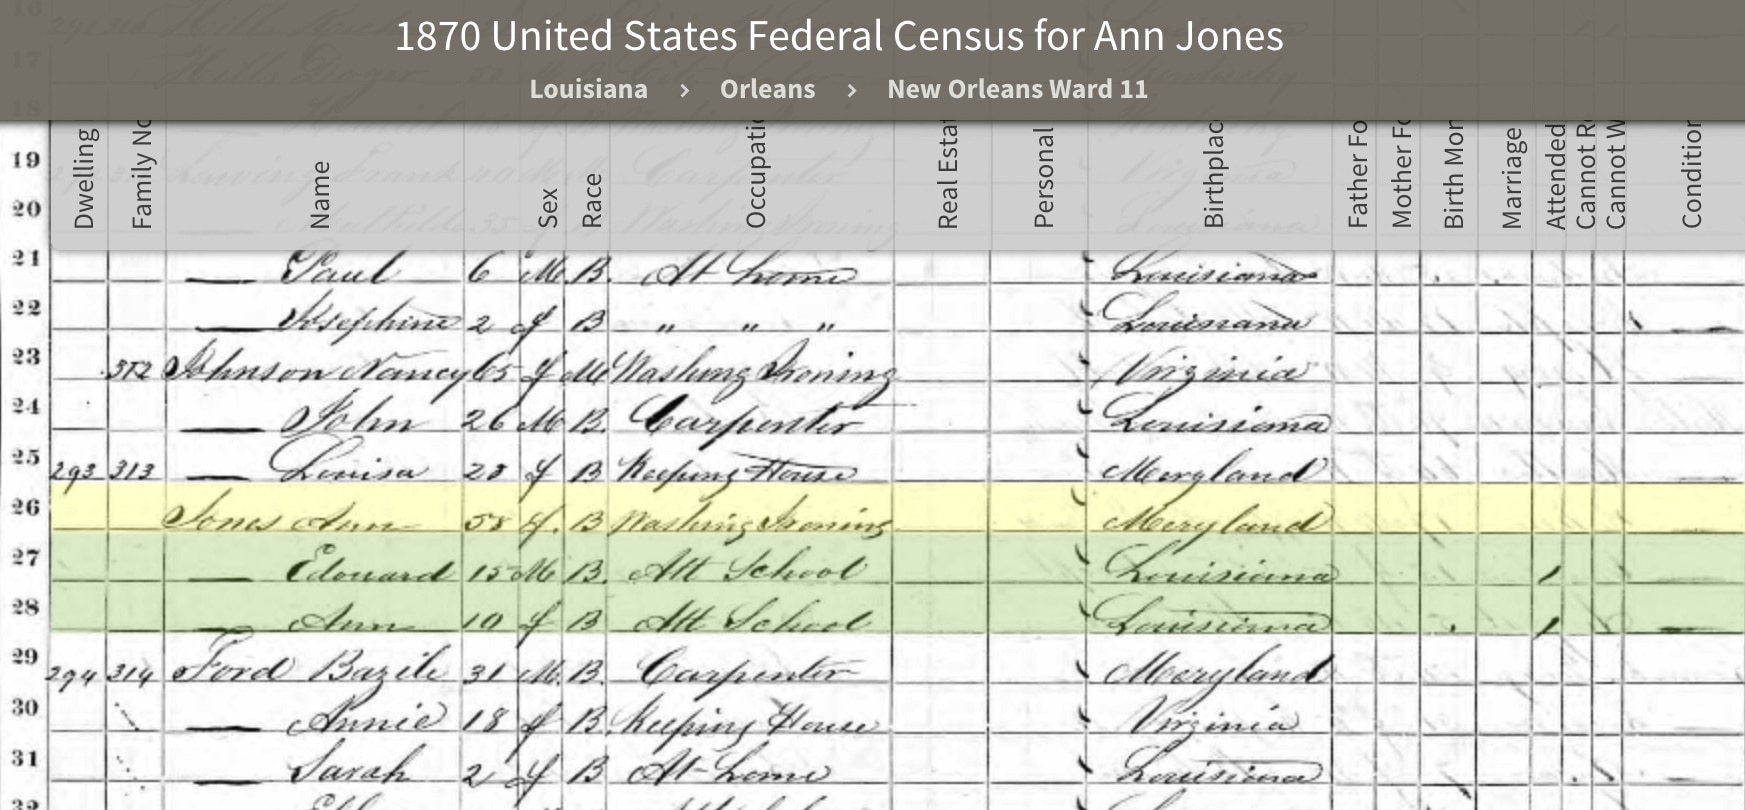 1870 United States Federal Census for Ann Jones
Louisiana > Orleans > New Orleans Ward 11
Dwelling Family No Name Sex Race Occupati Real Estat Personal Birthplac Father Fo Mother Fo Birth Mon Marriage Attended Cannot R Cannot W Condition
19 Frank Carpenter Virginia
20 35 Washing Ironing Louisiana
21 Paul 6 M B. At home Louisiana
22 Josephine 2 f B " " " Louisiana
23 312 Johnson Nancy 65 f M Washing Ironing Virginia
24 John 26 M B. Carpenter Louisiana
25 293 313 Louisa 23 f B Keeping House Maryland
26 Jones Ann 58 f. B Washing Ironing Maryland
27 Edouard 15 M B. Att School Louisiana
28 Ann 10 f B Att School Louisiana
29 294 314 Ford Bazile 31 M. B. Carpenter Maryland
30 Annie 18 f B. Keeping House Virginia
31 Sarah 2 f B At home Louisiana